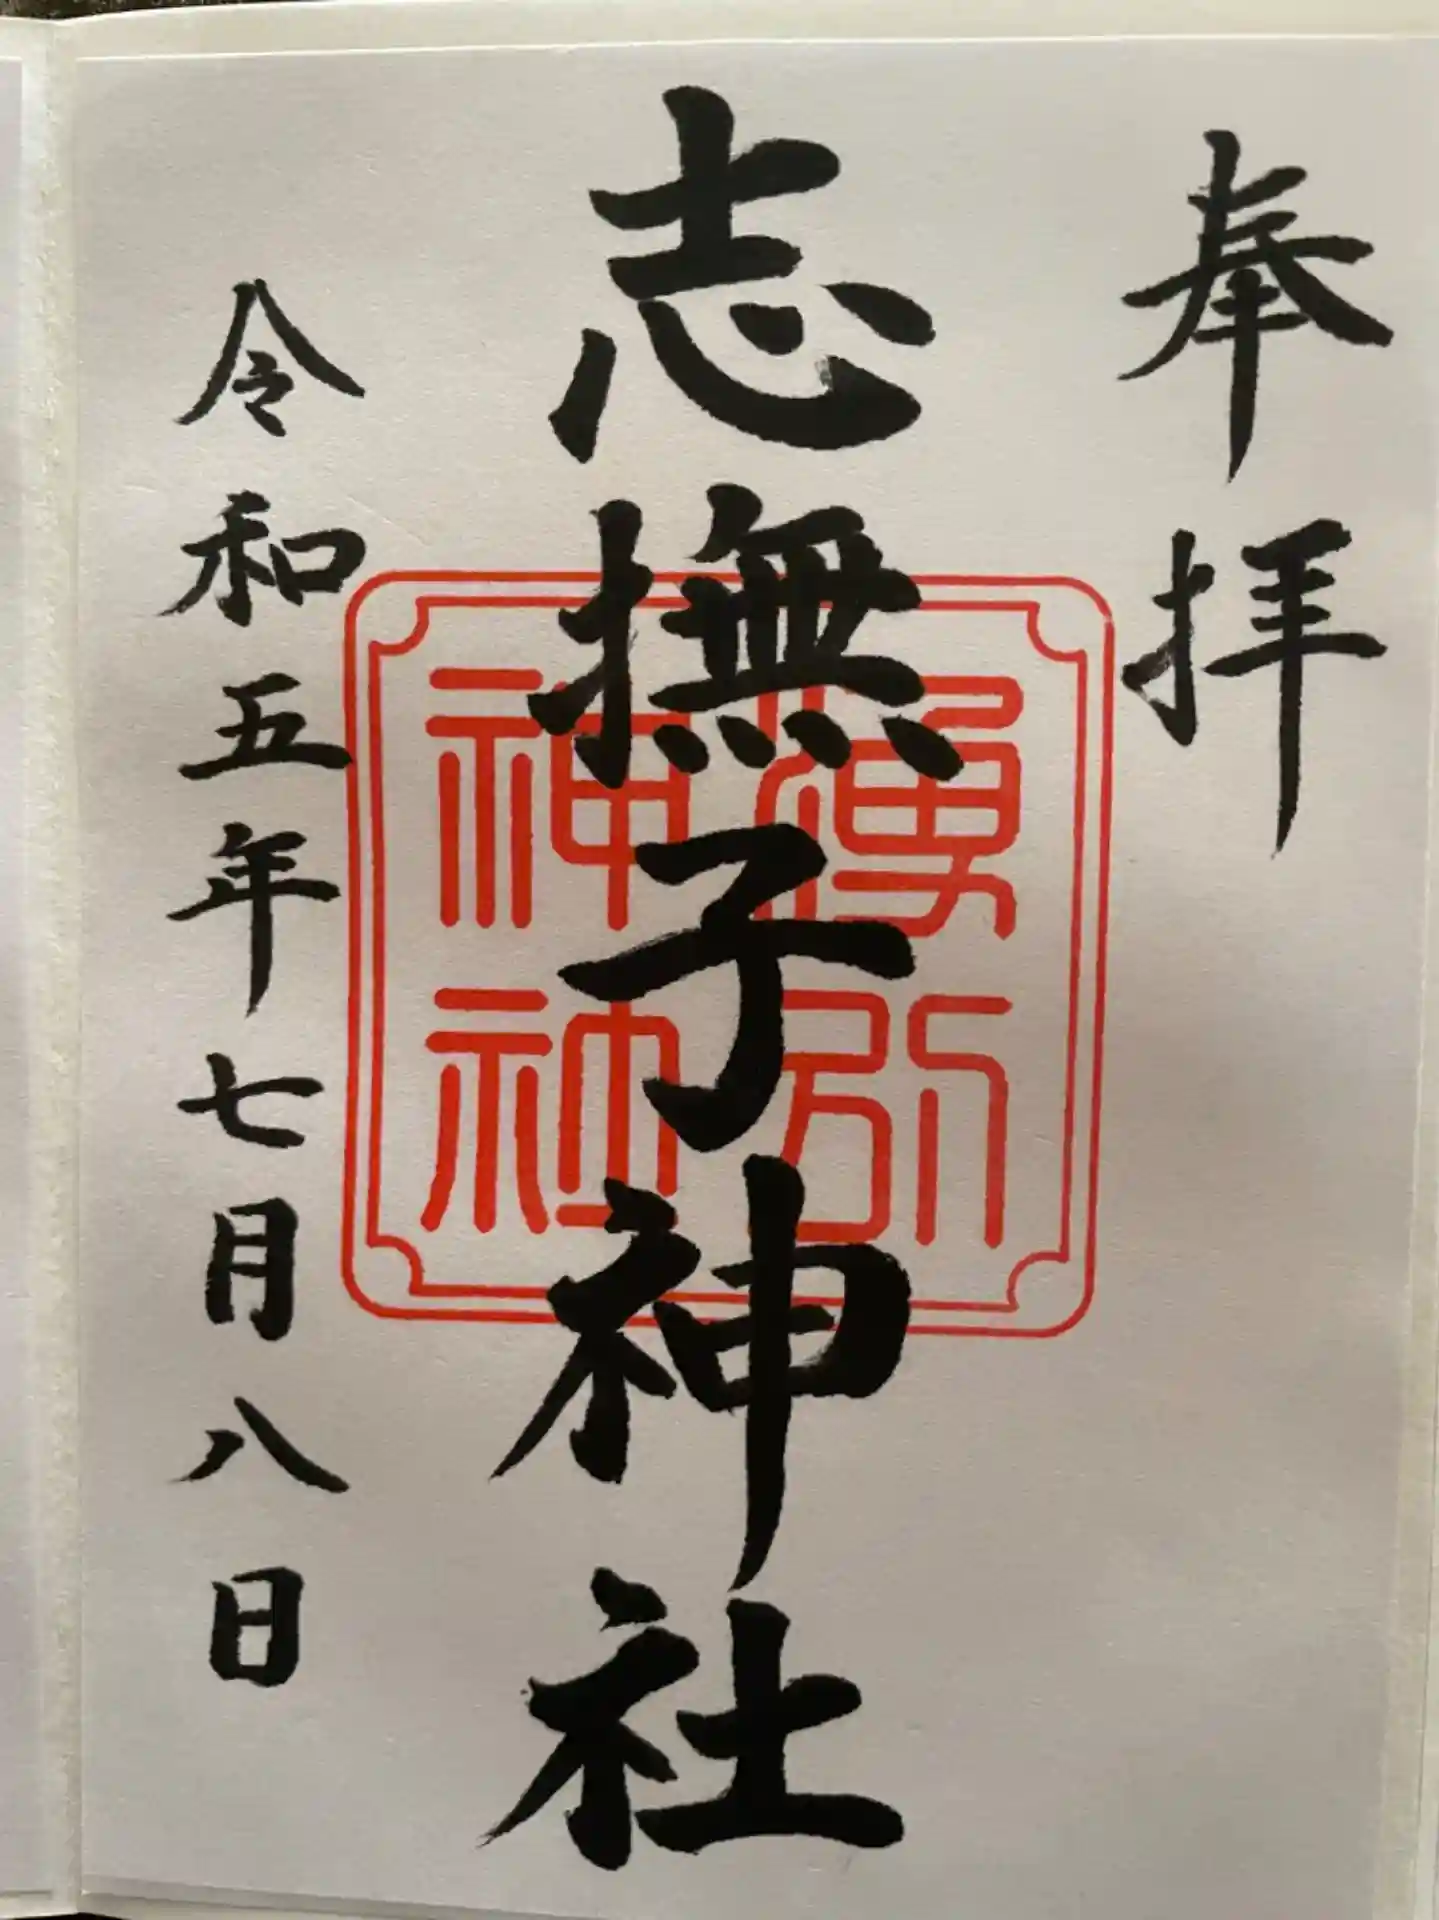 奉拝
志撫子神社
令和五年七月八日